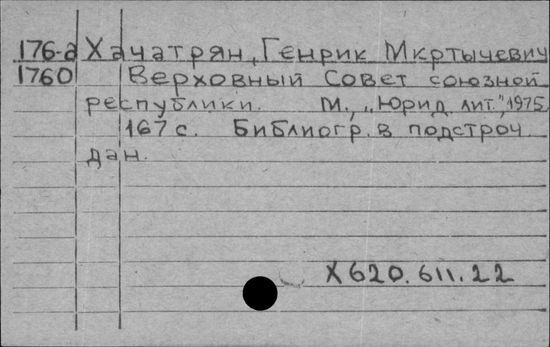 176-а Хачатрян, Генрик Мкртычевич
1760 Верховный Совет союзной
республики. М., „Юрид. лит.", 1975.
167 с. Библиогр. в подстроч.
дан.
Х620.611.22